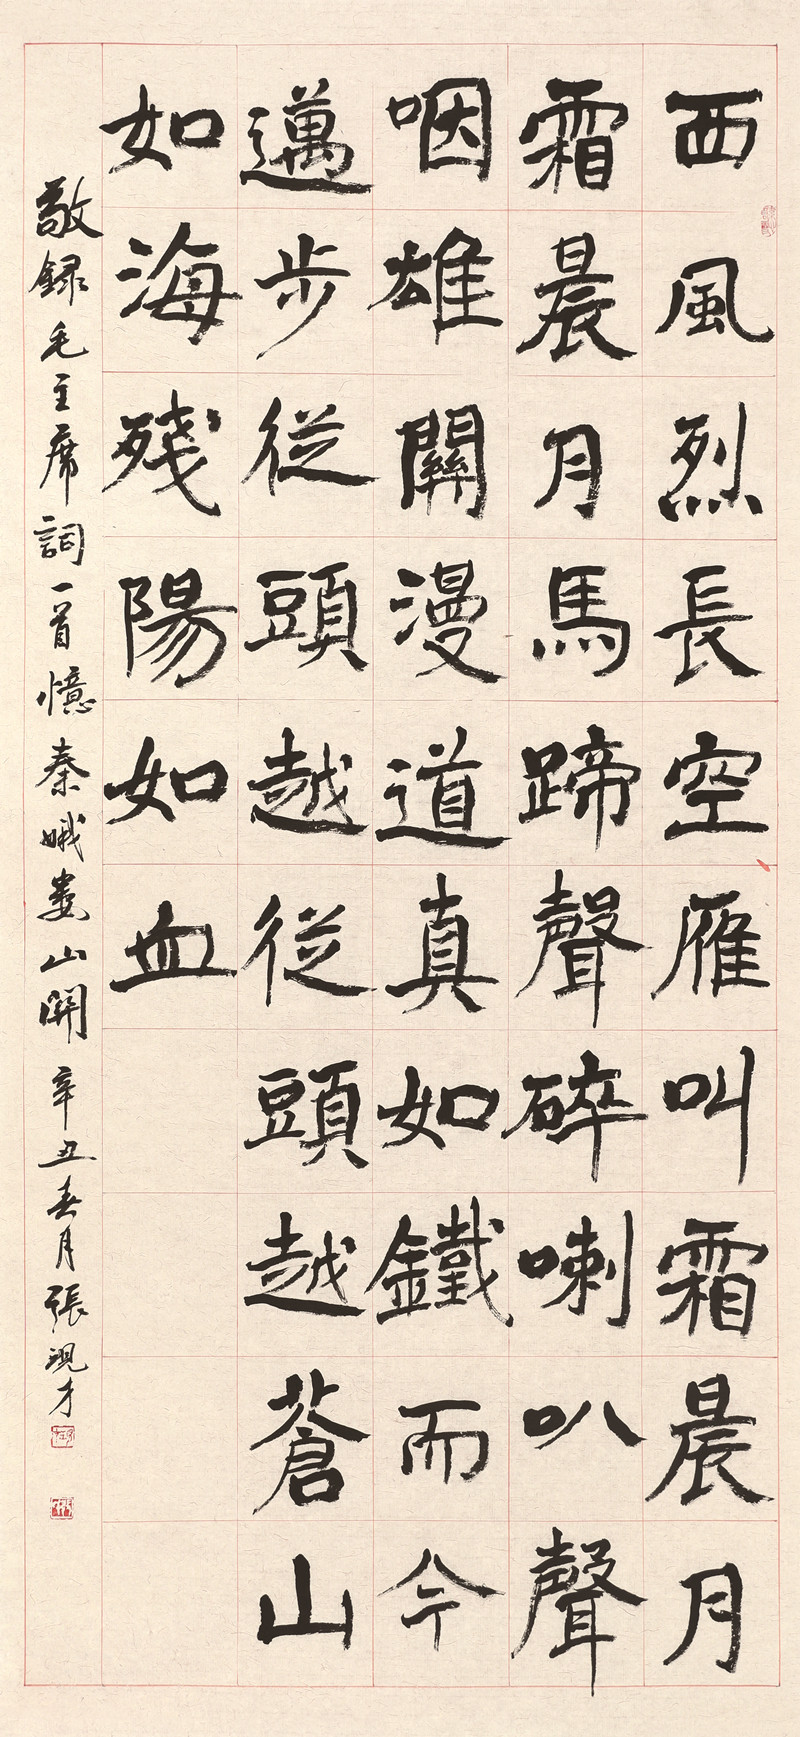 西風烈長空雁叫霜晨月
霜晨月馬蹄聲碎喇叭聲
咽雄關漫道真如鐵而今
邁步從頭越從頭越蒼山
如海殘陽如血
敬録毛主席詞一首憶秦娥婁山關辛丑春月張現才